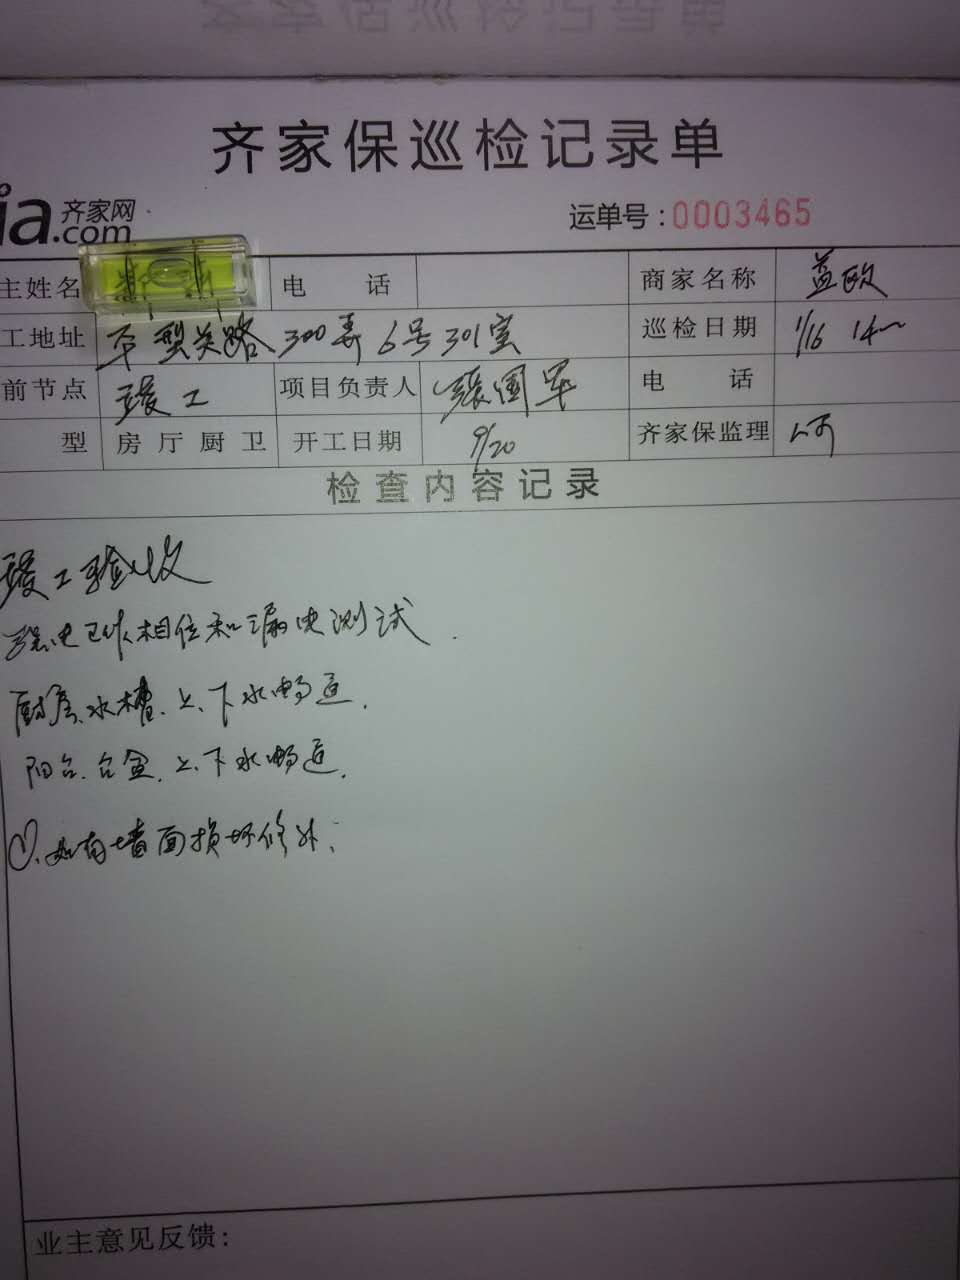 齐家保巡检记录单
ia.com 齐家网
运单号:0003465
主姓名 电话 商家名称 益欧
工地址 路300弄6号301室 巡检日期 1/16 14
前节点 竣工 项目负责人 张国军 电话
型 房厅厨卫 开工日期 9/20 齐家保监理
检查内容记录
竣工验收
强电已作相位和漏电测试.
厨房、水槽、上、下水畅通.
阳台、台盆、上、下水畅通.
①、如有墙面损坏修补;
业主意见反馈: